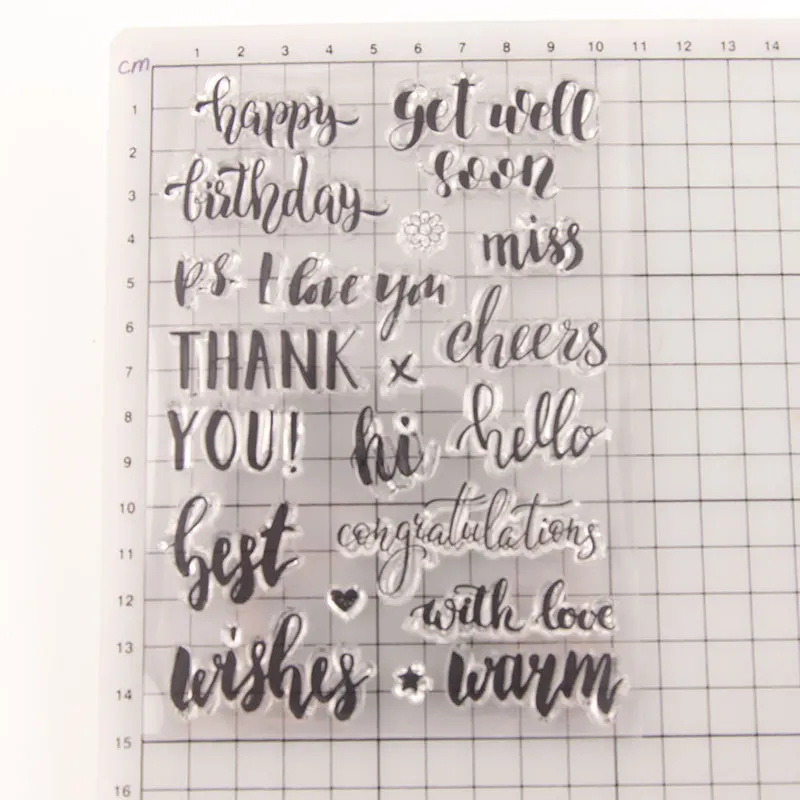 cm
1 2 3 4 5 6 7 8 9 10 11 12 13 14
1
2
3
4
5
6
7
8
9
10
11
12
13
14
15
16
happy
birthday
get well
soon
miss
p.s. I love you
THANK
YOU!
x
cheers
hi
hello
best
wishes
congratulations
with love
warm